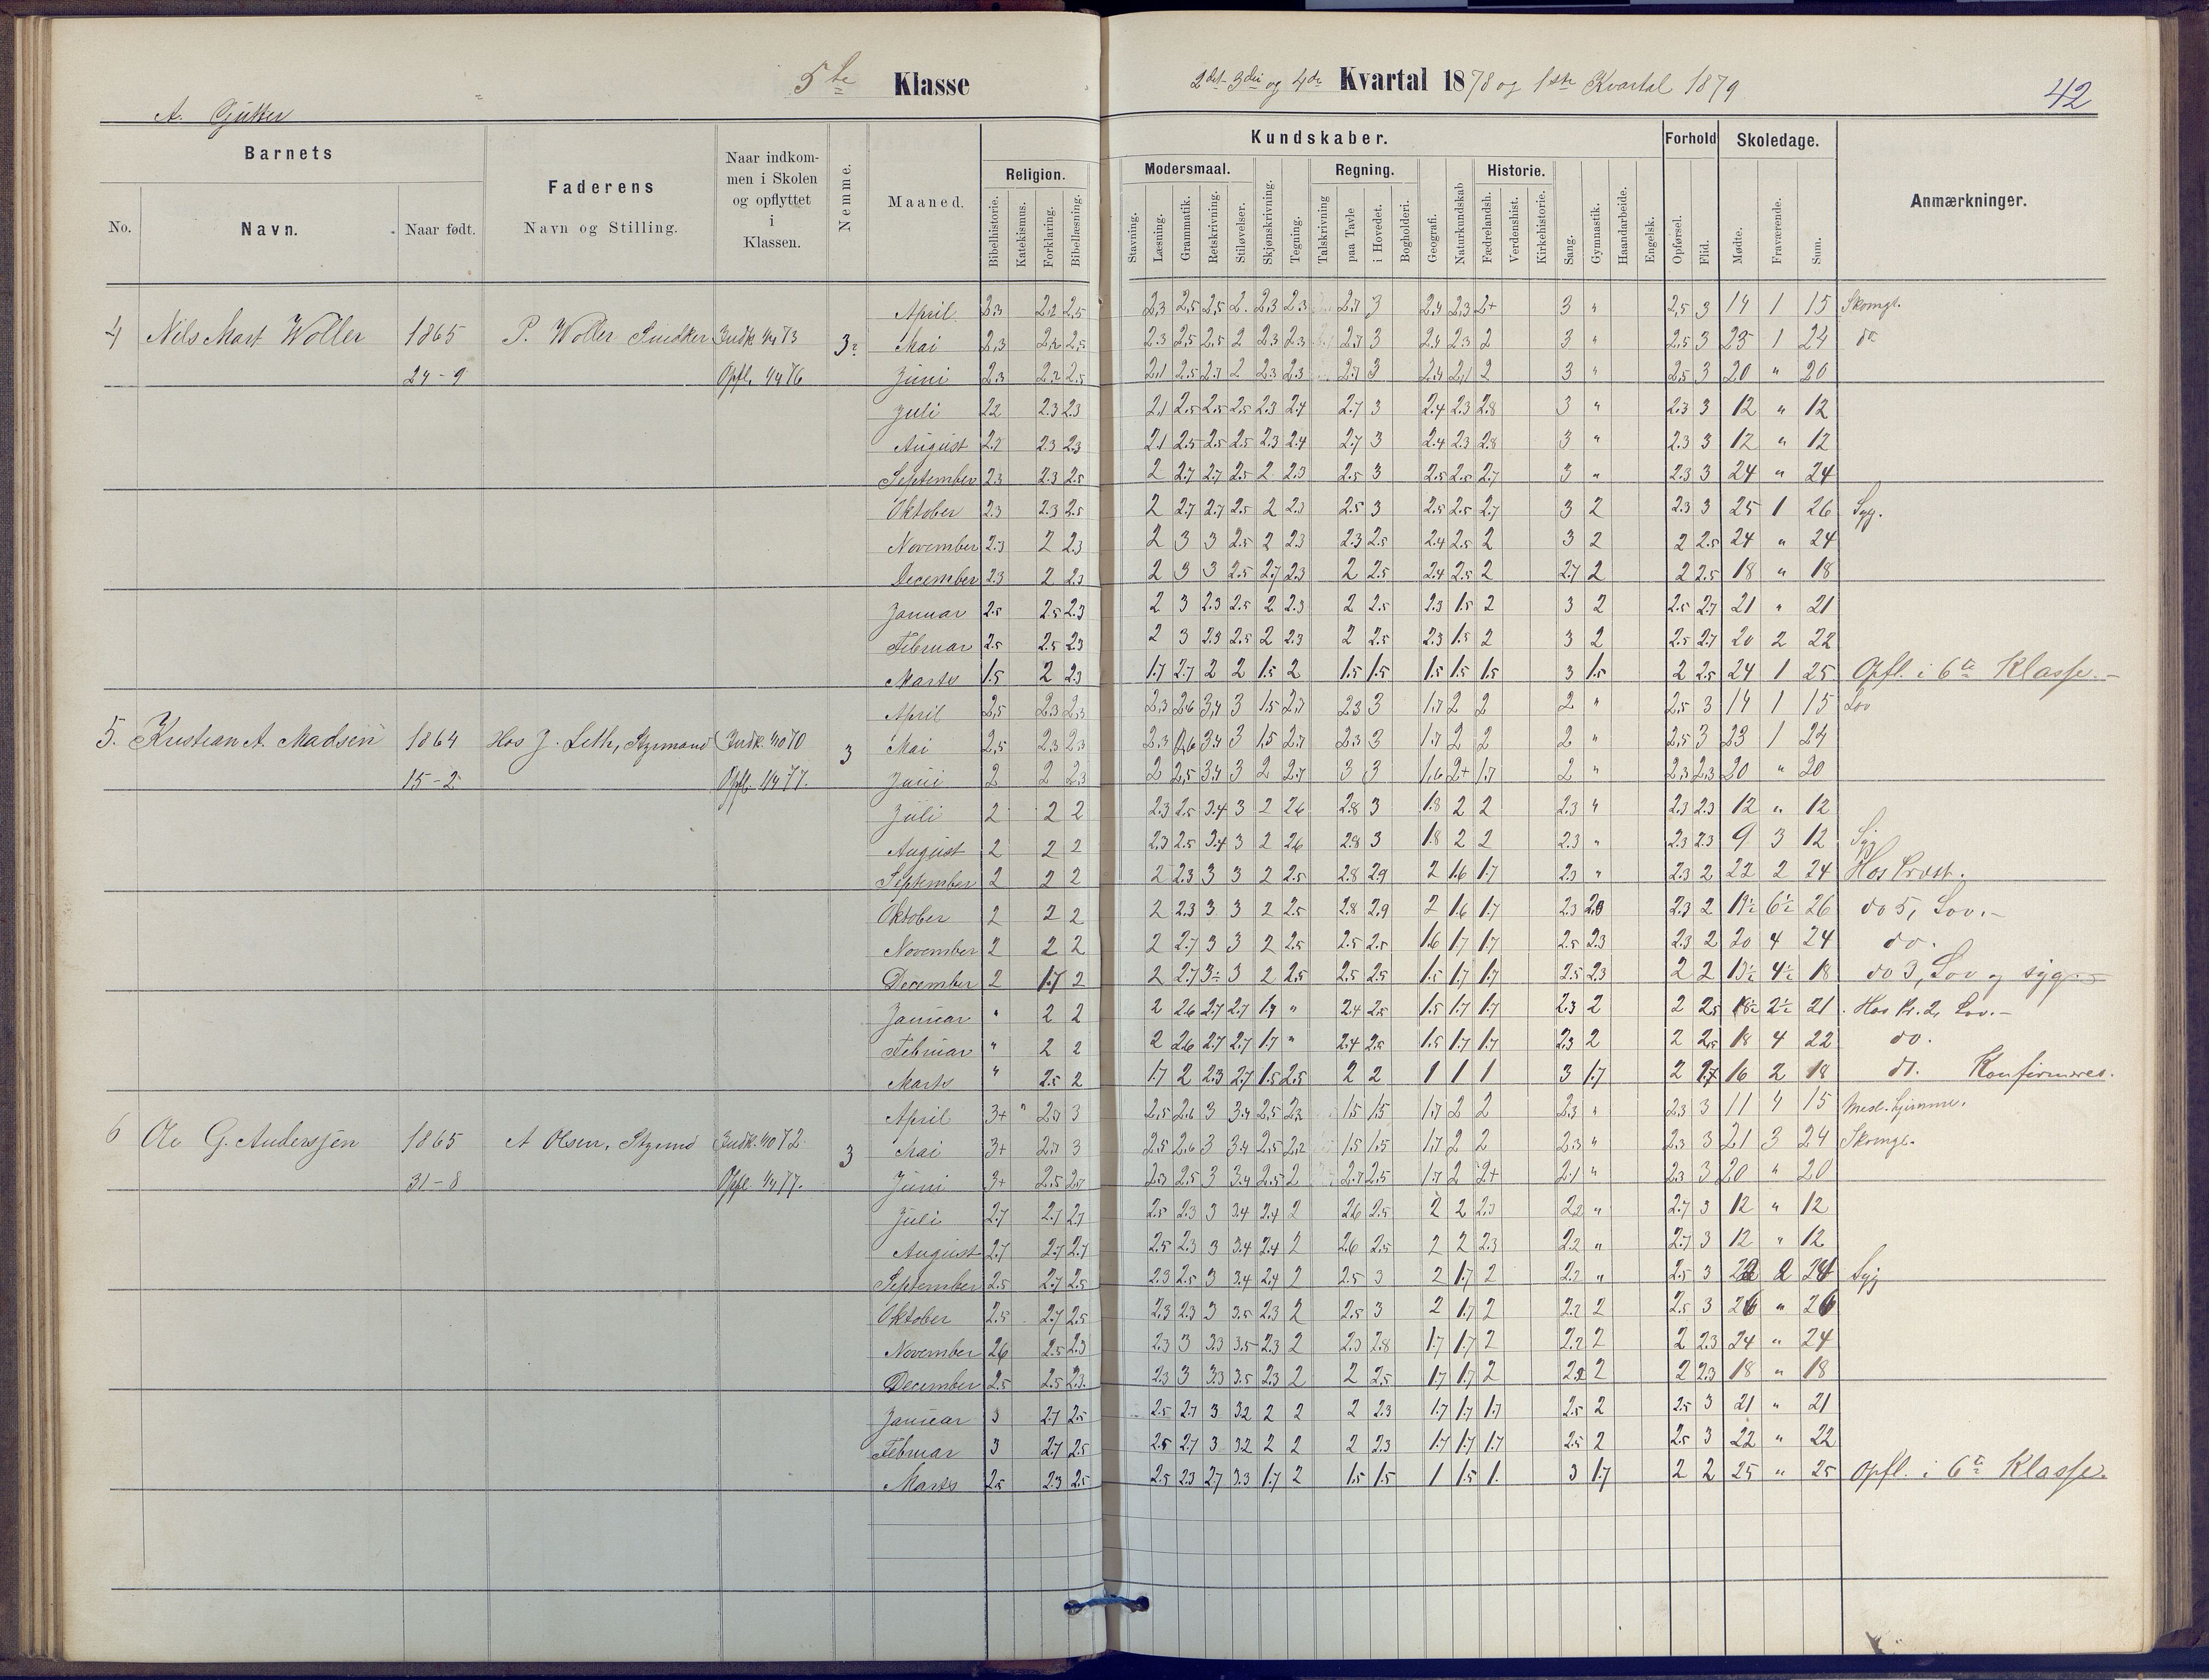 5te Klasse
2det 3die og 4de Kvartal 1878 og 1ste Kvartal 1879
42
A. Gutter
Barnets
Faderens
Naar indkommen i Skolen og opflyttet i Klassen.
Nemme.
Maaned.
Kundskaber.
Forhold
Skoledage.
Anmærkninger.
No. Navn. Naar født. Navn og Stilling.
Religion. Modersmaal. Regning. Historie.
Bibelhistorie. Katekismus. Forklaring. Bibellæsning. Stavning. Læsning. Grammatik. Retskrivning. Stiløvelser. Skjønskrivning. Tegning. Talskrivning paa Tavle i Hovedet. Bogholderi. Geografi. Naturkundskab Fædrelandsh. Verdenshist. Kirkehistorie. Sang. Gymnastik. Haandarbeide. Engelsk. Opførsel. Flid. Mødte. Fraværende. Sum.
4 Nils Mart Woller 1865 24-9 P. Woller Snedker Indk. 1/4 73 Opfl. 1/4 76
April 2,3 2,2 2,5 2,3 2,5 2,5 2. 2,3 2,3 2,7 3 2,4 2,3 2+ 3 " 2,5 3 14 1 15 Skomgl.
Mai 2,3 2,2 2,5 2.3 2,5 2,5 2 2,3 2,3 2,7 3 2,4 2,3 2 3 " 2.5 3 23 1 24 do
Juni 2.3 2,2 2.5 2,1 2.5 2.7 2 2,3 2,3 2,7 3 2,4 2,1 2 3 " 2,5 3 20 " 20
Juli 2.2 2.3 2.3 2.1 2.5 2.5 2.5 2.3 2.4 2.7 3 2.4 2.3 2.8 3 " 2.3 3 12 " 12
August 2.2 2.3 2.3 2.1 2.5 2.5 2.5 2.3 2.4 2.7 3 2.4 2.3 2.8 3 " 2.3 3 12 " 12
September 2.3 2.3 2.5 2 2.7 2.7 2.5 2 2.3 2.5 3 2.5 2.5 2.7 3 " 2.3 3 24 " 24
Oktober 2.3 2.3 2.5 2 2.7 2.7 2.5 2 2.3 2.5 3 2.5 2.5 2.7 3 2 2.3 3 25 1 26 Syg.
November 2.3 2 2.3 2 3 3 2.5 2 2.3 2.3 2.5 2.4 2.5 2 3 2 2 2.5 24 " 24
December 2.3 2 2.3 2 3 3 2.5 2.7 2.3 2 2.5 2.4 2.5 2 2.7 2 2 2.5 18 " 18
Januar 2.5 2.5 2.3 2 3 2.3 2.5 2 2.3 2 2.5 2.3 1.5 2 3 2 2.5 2.7 21 " 21
Februar 2.5 2.5 2.3 2 3 2.3 2.5 2 2.3 2 2.5 2.3 1.5 2 3 2 2.5 2.7 20 2 22
Marts 1.5 2 2.3 1.7 2.7 2 2 1.5 2 1.5 1.5 1.5 1.5 1.5 3 1.5 2 2.5 24 1 25 Opfl. i 6te Klasse.
5. Kristian A. Madsen 1864 15-2 Hos J. Leth, Styrmand Indk. 1/10 70 Opfl. 1/4 77. 3
April 2,5 2,3 2,3 2,3 2,6 3,4 3 1,5 2,7 2,3 3 1,7 2 2 2 " 2,5 3 14 1 15 Lov
Mai 2,5 2,3 2,3 2,3 2,6 3,4 3 1,5 2,7 2,3 3 1,7 2 2 2 " 2,5 3 23 1 24
Juni 2 2 2,3 2 2,5 3,4 3 2 2,7 3 3 1,6 2+ 1,7 2 " 2,3 2,3 20 " 20
Juli 2 2 2 2.3 2.5 3.4 3 2 2.6 2.8 3 1.8 2 2 2.3 " 2.3 2.3 12 " 12
August 2 2 2 2.3 2.5 3.4 3 2 2.6 2.8 3 1.8 2 2 2.3 " 2.3 2.3 9 3 12 Syg
September 2 2 2 2 2.3 3 3 2 2.5 2.8 2.9 2 1.6 1.7 2.3 " 2.3 2 22 2 24 Hos Præst.
Oktober 2 2 2 2 2.3 3 3 2 2.5 2.8 2.9 2 1.6 1.7 2.3 2.3 2.3 2 19½ 6½ 26 do 5, Lov.
November 2 2 2 2 2.7 3 3 2 2.5 2.5 2.5 1.6 1.7 1.7 2.5 2.3 2.3 2 20 4 24 do.
December 2 1.7 2 2 2.7 3 3 2 2.5 2.5 2.5 1.5 1.7 1.7 2.5 2.3 2 2 13½ 4½ 18 do 3, Lov og syg
Januar " 2 2 2 2.6 2.7 2.7 1.7 " 2.4 2.5 1.5 1.7 1.7 2.3 2 2 2.5 18½ 2½ 21 Hos Pr. 2, Lov.
Februar " 2 2 2 2.6 2.7 2.7 1.7 " 2.4 2.5 1.5 1.7 1.7 2.3 2 2 2.5 18 4 22 do.
Marts " 2.5 2 1.7 2 2.3 2.7 1.5 2.5 2 2 1 1 1 3 1.7 2 1.7 16 2 18 do. Konfirmeres.
6 Ole G. Anderssen 1865 31-8 A Olsen, Styrmd Indk. 1/10 72. Opfl. 1/4 77. 3
April 3+ " 2,7 3 2,5 2,6 3 3,4 2,5 2,2 1,5 1,5 1,7 2 2 2,3 " 2,3 3 11 4 15
Mai 3+ 2,7 3 2,5 2,6 3 3,4 2,5 2,2 1,5 1,5 1,7 2 2 2,3 " 2,3 3 21 3 24 Skomgl.
Juni 3+ 2,5 2,7 2,7 2,5 3 3,4 2,5 2 2,7 2,5 1,7 2 2+ 2,1 " 2,3 3 20 " 20
Juli 2.7 2.7 2.7 2.5 2.3 3 3.4 2.4 2 2.6 2.5 2 2 2.3 2.2 " 2.7 3 12 " 12
August 2.7 2.7 2.7 2.5 2.3 3 3.4 2.4 2 2.6 2.5 2 2 2.3 2.2 " 2.7 3 12 " 12
September 2.5 2.7 2.5 2.3 2.5 3 3.4 2.4 2 2.5 3 2 1.7 2 2.2 " 2.5 3 22 2 24 Syg
Oktober 2.5 2.7 2.5 2.3 2.3 3 3.5 2.3 2 2.5 3 2 1.7 2 2.2 2 2.5 3 26 " 26
November 2.6 2.5 2.3 2.3 3 3.3 3.5 2.3 2 2.3 2.8 1.7 1.7 2 2.2 2 2 2.3 24 " 24
December 2.5 2.5 2.3 2.3 3 3.3 3.5 2.3 2 2 2.5 1.7 1.7 2 2.2 2 2 2.3 18 " 18
Januar 3 2.7 2.5 2.5 2.7 3 3.2 2 2 2 2.3 1.7 1.7 1.7 2.5 2 2.5 3 21 " 21
Februar 3 2.7 2.5 2.5 2.7 3 3.2 2 2 2 2.3 1.7 1.7 1.7 2.5 2 2.5 3 22 " 22
Marts 2.5 2.3 2.5 2.5 2.3 2.7 3.3 1.7 2 1.5 1.5 1 1.5 1. 3 1.7 2 2 25 " 25 Opfl. i 6te Klasse.